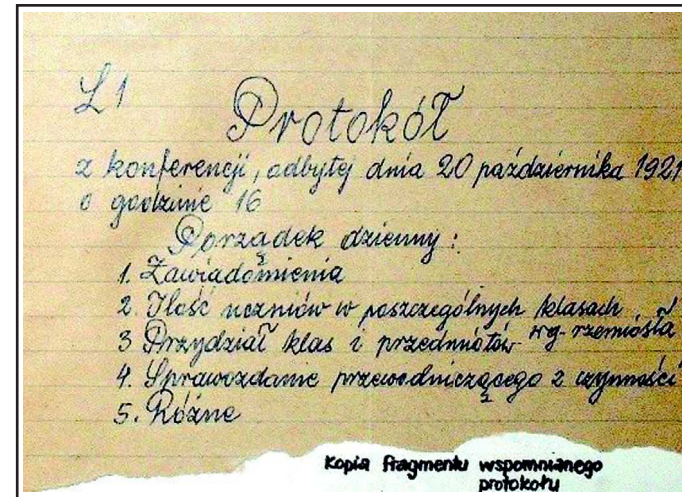 L1
Protokół
z konferencji, odbytej dnia 20 października 1921
o godzinie 16
Porządek dzienny:
1. Zawiadomienia
2. Ilość uczniów w poszczególnych klasach
3 Przydział klas i przedmiotów wg. rzemiosła
4. Sprawozdanie przewodniczącego z czynności
5. Różne
Kopia fragmentu wspomnianego
protokołu